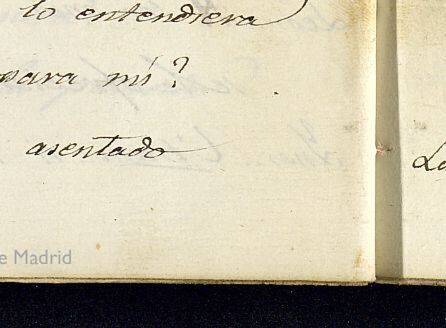 lo entendiera
para mí?
asentado
La
e Madrid